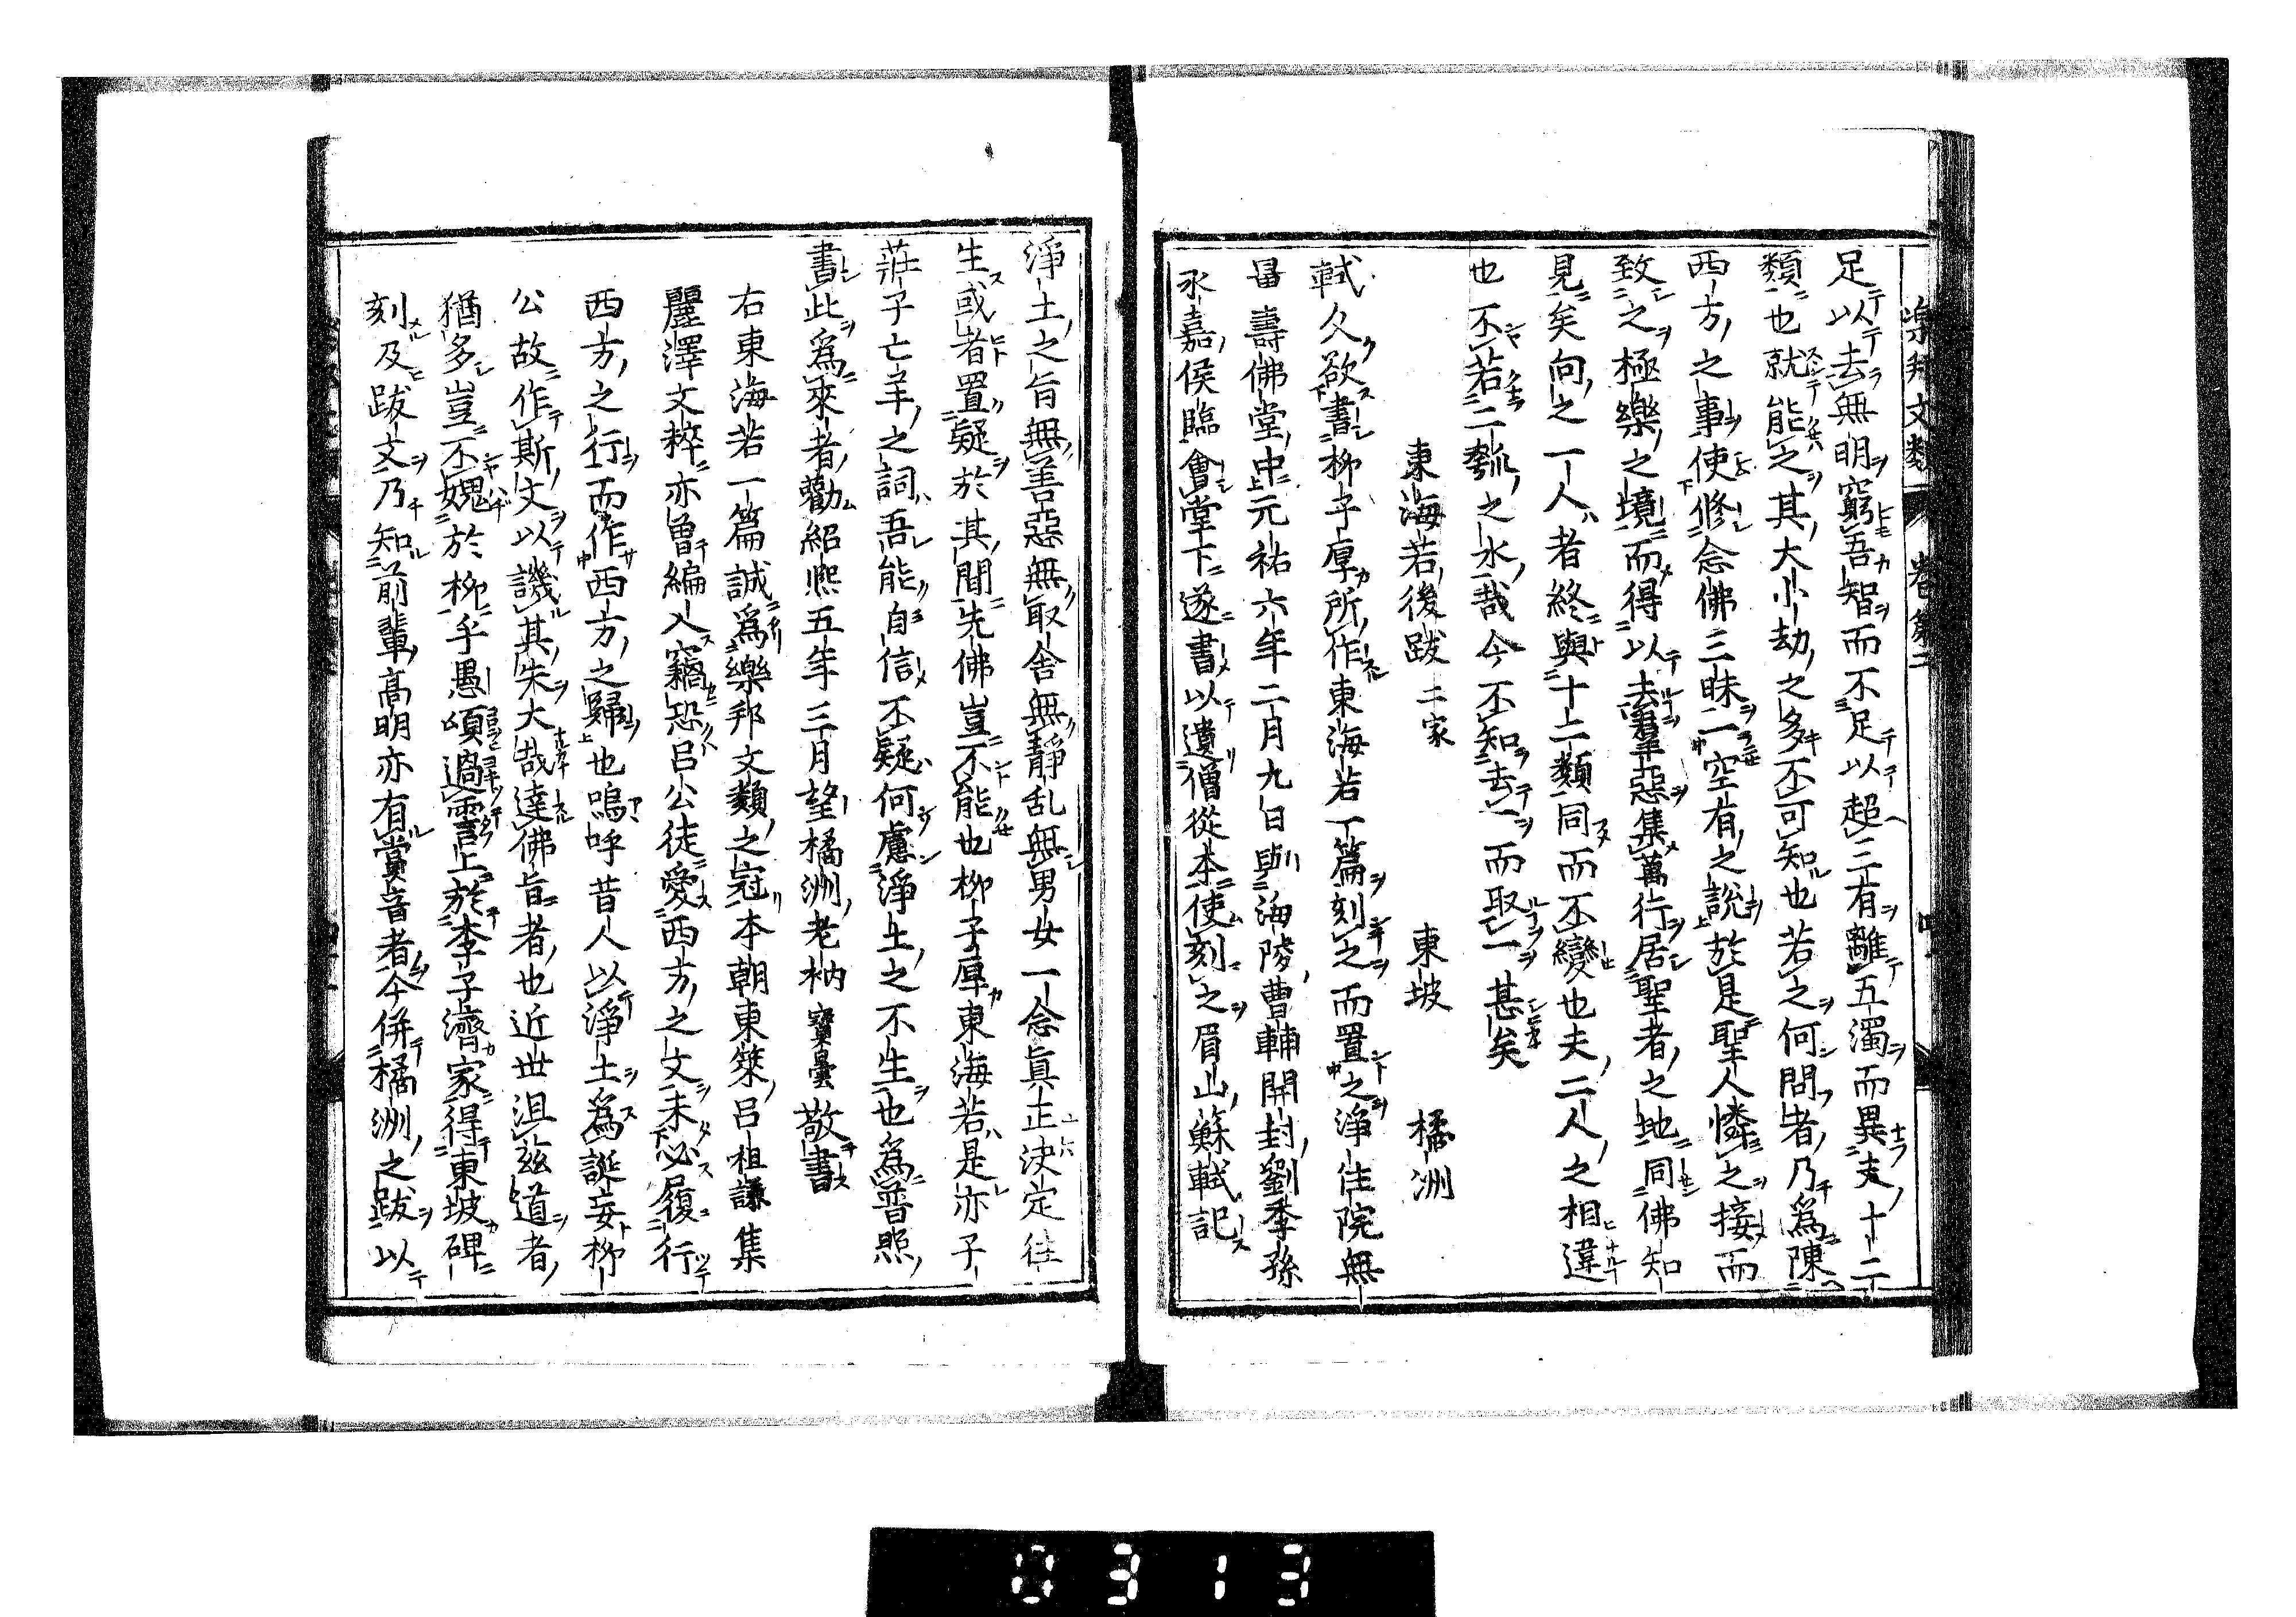 樂邦文類 卷第二
足以去無明窮吾智而不足以超三有離五濁而異夫十二
類也就能之其大小劫之多不可知也若之何問者乃為陳
西方之事使修念佛三昧一空有之說於是聖人憐之接而
致之極樂之境而得以去羣惡集萬行居聖者之地同佛知
見矣向之一人者終與十二類同而不變也夫二人之相違
也不若二瓠之水哉今不知去一而取一甚矣
東海若後跋 二家 東坡 橘洲
軾久欲書柳子厚所作東海若一篇刻之而置之淨住院無
量壽佛堂中元祐六年二月九日與海陵曹輔開封劉季孫
永嘉侯臨會堂下遂書以遺僧從本使刻之眉山蘇軾記
淨土之旨無善惡無取舍無靜乱無男女一念真正決定往
生或者置疑於其間先佛豈不能也柳子厚東海若是亦子
莊子亡羊之詞吾能自信不疑何慮淨土之不生也為普照
書此為來者勸紹熙五年三月望橘洲老衲寶曇敬書
右東海若一篇誠為樂邦文類之冠本朝東萊呂祖謙集
麗澤文粹亦曾編入竊恐呂公徒愛西方之文未必履行
西方之行而作西方之歸也嗚呼昔人以淨土為誕妄柳
公故作斯文以譏其失大哉達佛旨者也近世沮茲道者
猶多豈不媿於柳乎愚頃過霅上於李子濟家得東坡碑
刻及跋文乃知前輩高明亦有賞音者今併橘洲之跋以
0313